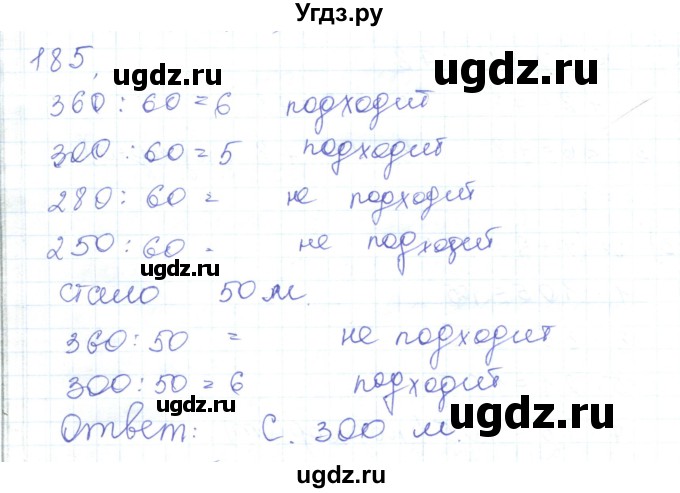 Угдз.ру
185,
ugdz.ru ugdz.ru
360 : 60 = 6 подходит
300 : 60 = 5 подходит
280 : 60 = не подходит
250 : 60 = не подходит
ugdz.ru
стало 50 м.
360 : 50 = не подходит
300 : 50 = 6 подходит
ugdz.ru ugdz.ru
Ответ: С. 300 м.
ugdz.ru